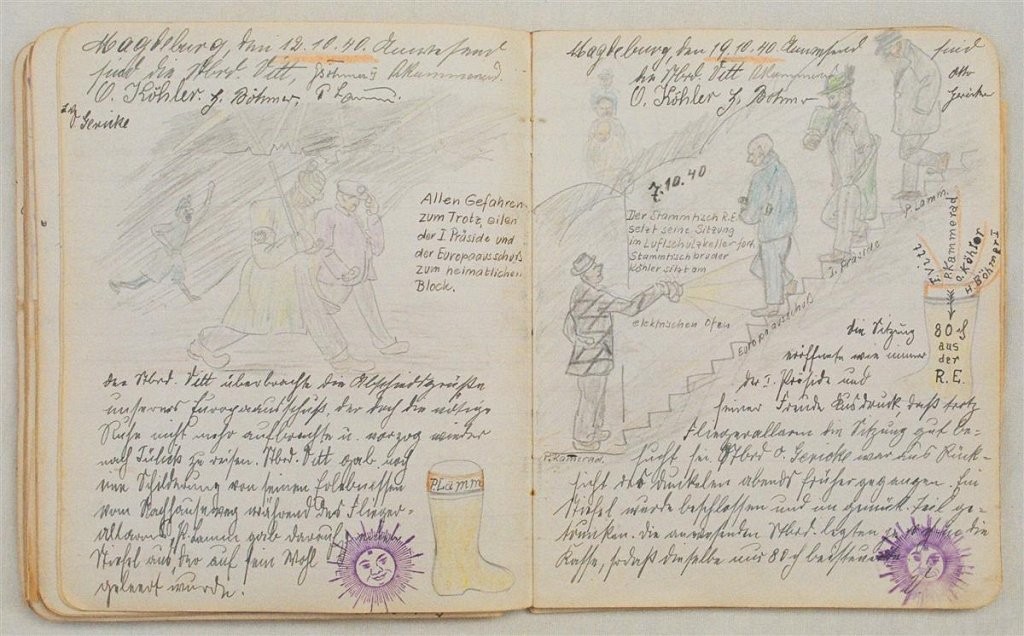 Magdeburg, den 12.10.40. Anwesend
sind die Stbrd. Vitt, Böhmer I P. Kammerad.
O. Köhler. H. Böhmer, P. Lamm.
Gericke
Allen Gefahren
zum Trotz, eilen
der I. Präside und
der Europaausschuß
zum heimatlichen
Block.
der Stbrd. Vitt überbrachte die Abschiedsgrüße
unseres Europaausschuß, der doch die nötige
Ruhe nicht mehr aufbrachte u. vorzog wieder
nach zu reisen. Stbrd. Vitt gab noch
eine Schilderung von seinen Erlebnissen
vom Nachhauseweg während des Flieger-
alarms. P. Lamm gab darauf
Stiefel aus, der auf sein Wohl
geleert wurde.
P. Lamm
Magdeburg, den 19.10.40 Anwesend sind
die Stbrd. Vitt
O. Köhler H. Böhmer
Otto
Gericke
7.10.40
Der Stammtisch R.E.
setzt seine Sitzung
im Luftschutzkeller fort.
Stammtischbruder
Köhler sitzt am
elektrischen Ofen
P. Lamm.
I. Präside
Europaausschuß
P. Kamerad.
F. Vitt
P. Kammerad
O. Köhler
H. Böhmer I
80
aus
der
R.E.
die Sitzung
eröffnete wie immer
der I. Präside und
seiner Freude Ausdruck daß trotz
Fliegeralarm die Sitzung gut be-
sucht sei. Stbrd. O. Gericke war aus Rück-
sicht des Dunkelen abends früher gegangen. Ein
Stiefel wurde beschlossen und im gemütl. Teil ge-
trunken. Die anwesenden Stbrd. legten die
Kasse, sodaß dieselbe nur 80